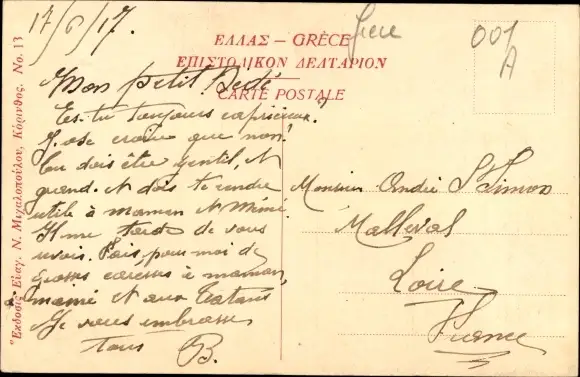 17/6/17.
Grèce
001
A
ΕΛΛΑΣ – GRÈCE
ΕΠΙΣΤΟΛΙΚΟΝ ΔΕΛΤΑΡΙΟΝ
CARTE POSTALE
Ἔκδοσις Εὐαγ. Ν. Μιχαλοπούλου, Κόρινθος. No. 13
Mon petit Dédé
Es-tu toujours capricieux,
J'ose croire que non!
tu dois être gentil, et
grand. et dois te rendre
utile à maman et Mémé.
Il me tarde de vous
revoir. Fais, pour moi de
grosses caresses à maman,
à mémé et aux tatans
Je vous embrasse
tous B.
Monsieur André
Malleval
Loire
France